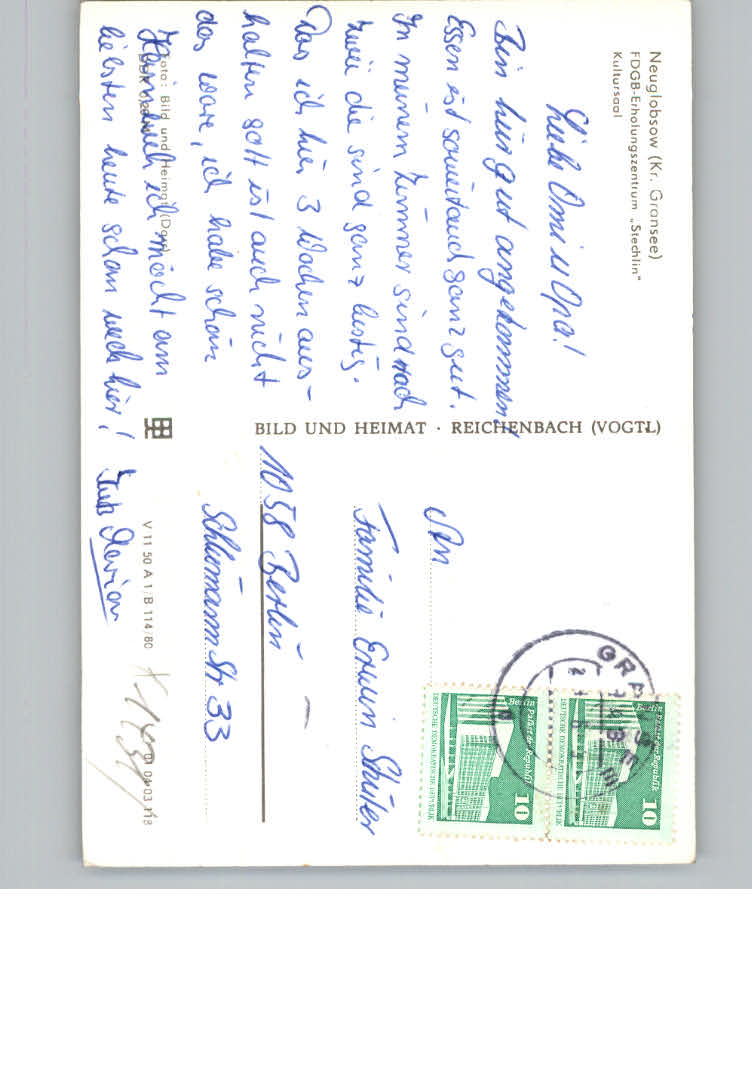 Neuglobsow (Kr. Gransee)
FDGB-Erholungszentrum „Stechlin"
Kultursaal
Liebe Omi u Opa!
Bin hier gut angekommen!
Essen ist soweit auch ganz gut.
In meinem Zimmer sind noch
zwei die sind ganz lustig.
Das ich hier 3 Wochen aus-
halten soll ist auch nicht
das ware, ich habe schon
Heimweh ich möcht am
liebsten heute schon weg hier!
Foto: Bild und Heimat
BILD UND HEIMAT · REICHENBACH (VOGTL)
V 11 50 A 1/B 114/80
01 04 03 118
An
Familie Erwin Stüter
1058 Berlin
Schliemannstr 33
GRANSEE
Berlin Palast der Republik
DEUTSCHE DEMOKRATISCHE REPUBLIK
10
Berlin Palast der Republik
DEUTSCHE DEMOKRATISCHE REPUBLIK
10